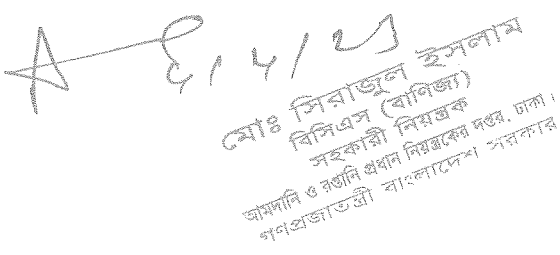 মোঃ সিরাজুল ইসলাম
বিসিএস (বাণিজ্য)
সহকারী নিয়ন্ত্রক
আমদানি ও রপ্তানি প্রধান নিয়ন্ত্রকের দপ্তর, ঢাকা।
গণপ্রজাতন্ত্রী বাংলাদেশ সরকার